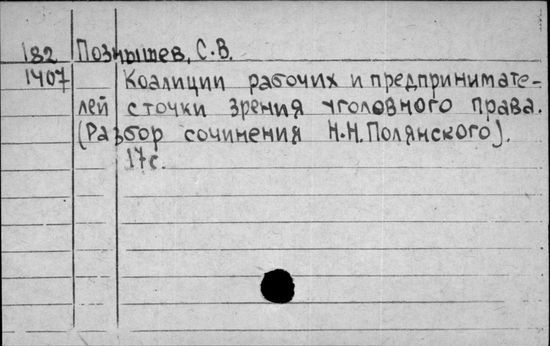 182 Познышев, С.В.
1407 Коалиции рабочих и предпринимате-
лей с точки зрения уголовного права.
(Разбор сочинения Н.Н.Полянского).
17с.